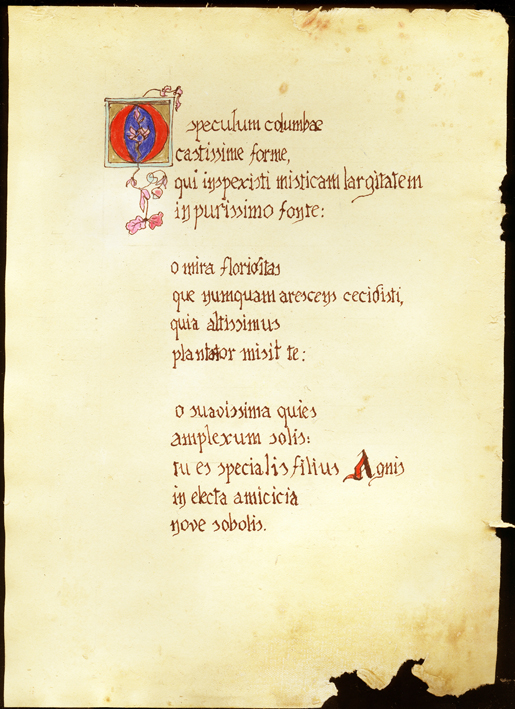 O speculum columbae
castissime forme,
qui inspexisti misticam largitatem
in purissimo fonte:
o mira floriditas
que numquam arescens cecidisti,
quia altissimus
plantator misit te:
o suavissima quies
amplexum solis:
tu es specialis filius Agnis
in electa amicicia
nove sobolis.